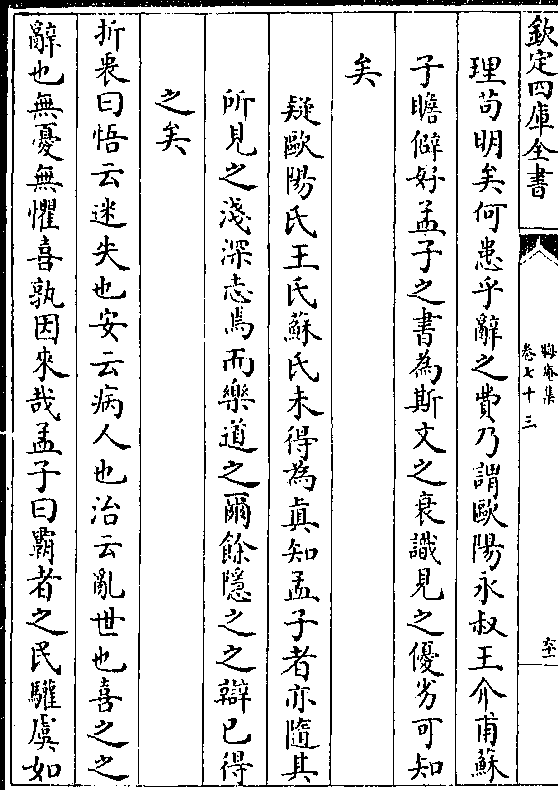 欽定四庫全書
晦庵集
卷七十三
理苟明矣何患乎辭之費乃謂歐陽永叔王介甫蘇
子瞻僻好孟子之書為斯文之衰識見之優劣可知
矣
疑歐陽氏王氏蘇氏未得為真知孟子者亦隨其
所見之淺深志焉而樂道之爾餘隱之之辯已得
之矣
折衷曰悟云迷失也安云病人也治云亂世也喜之之
辭也無憂無懼喜孰因來哉孟子曰霸者之民驩虞如